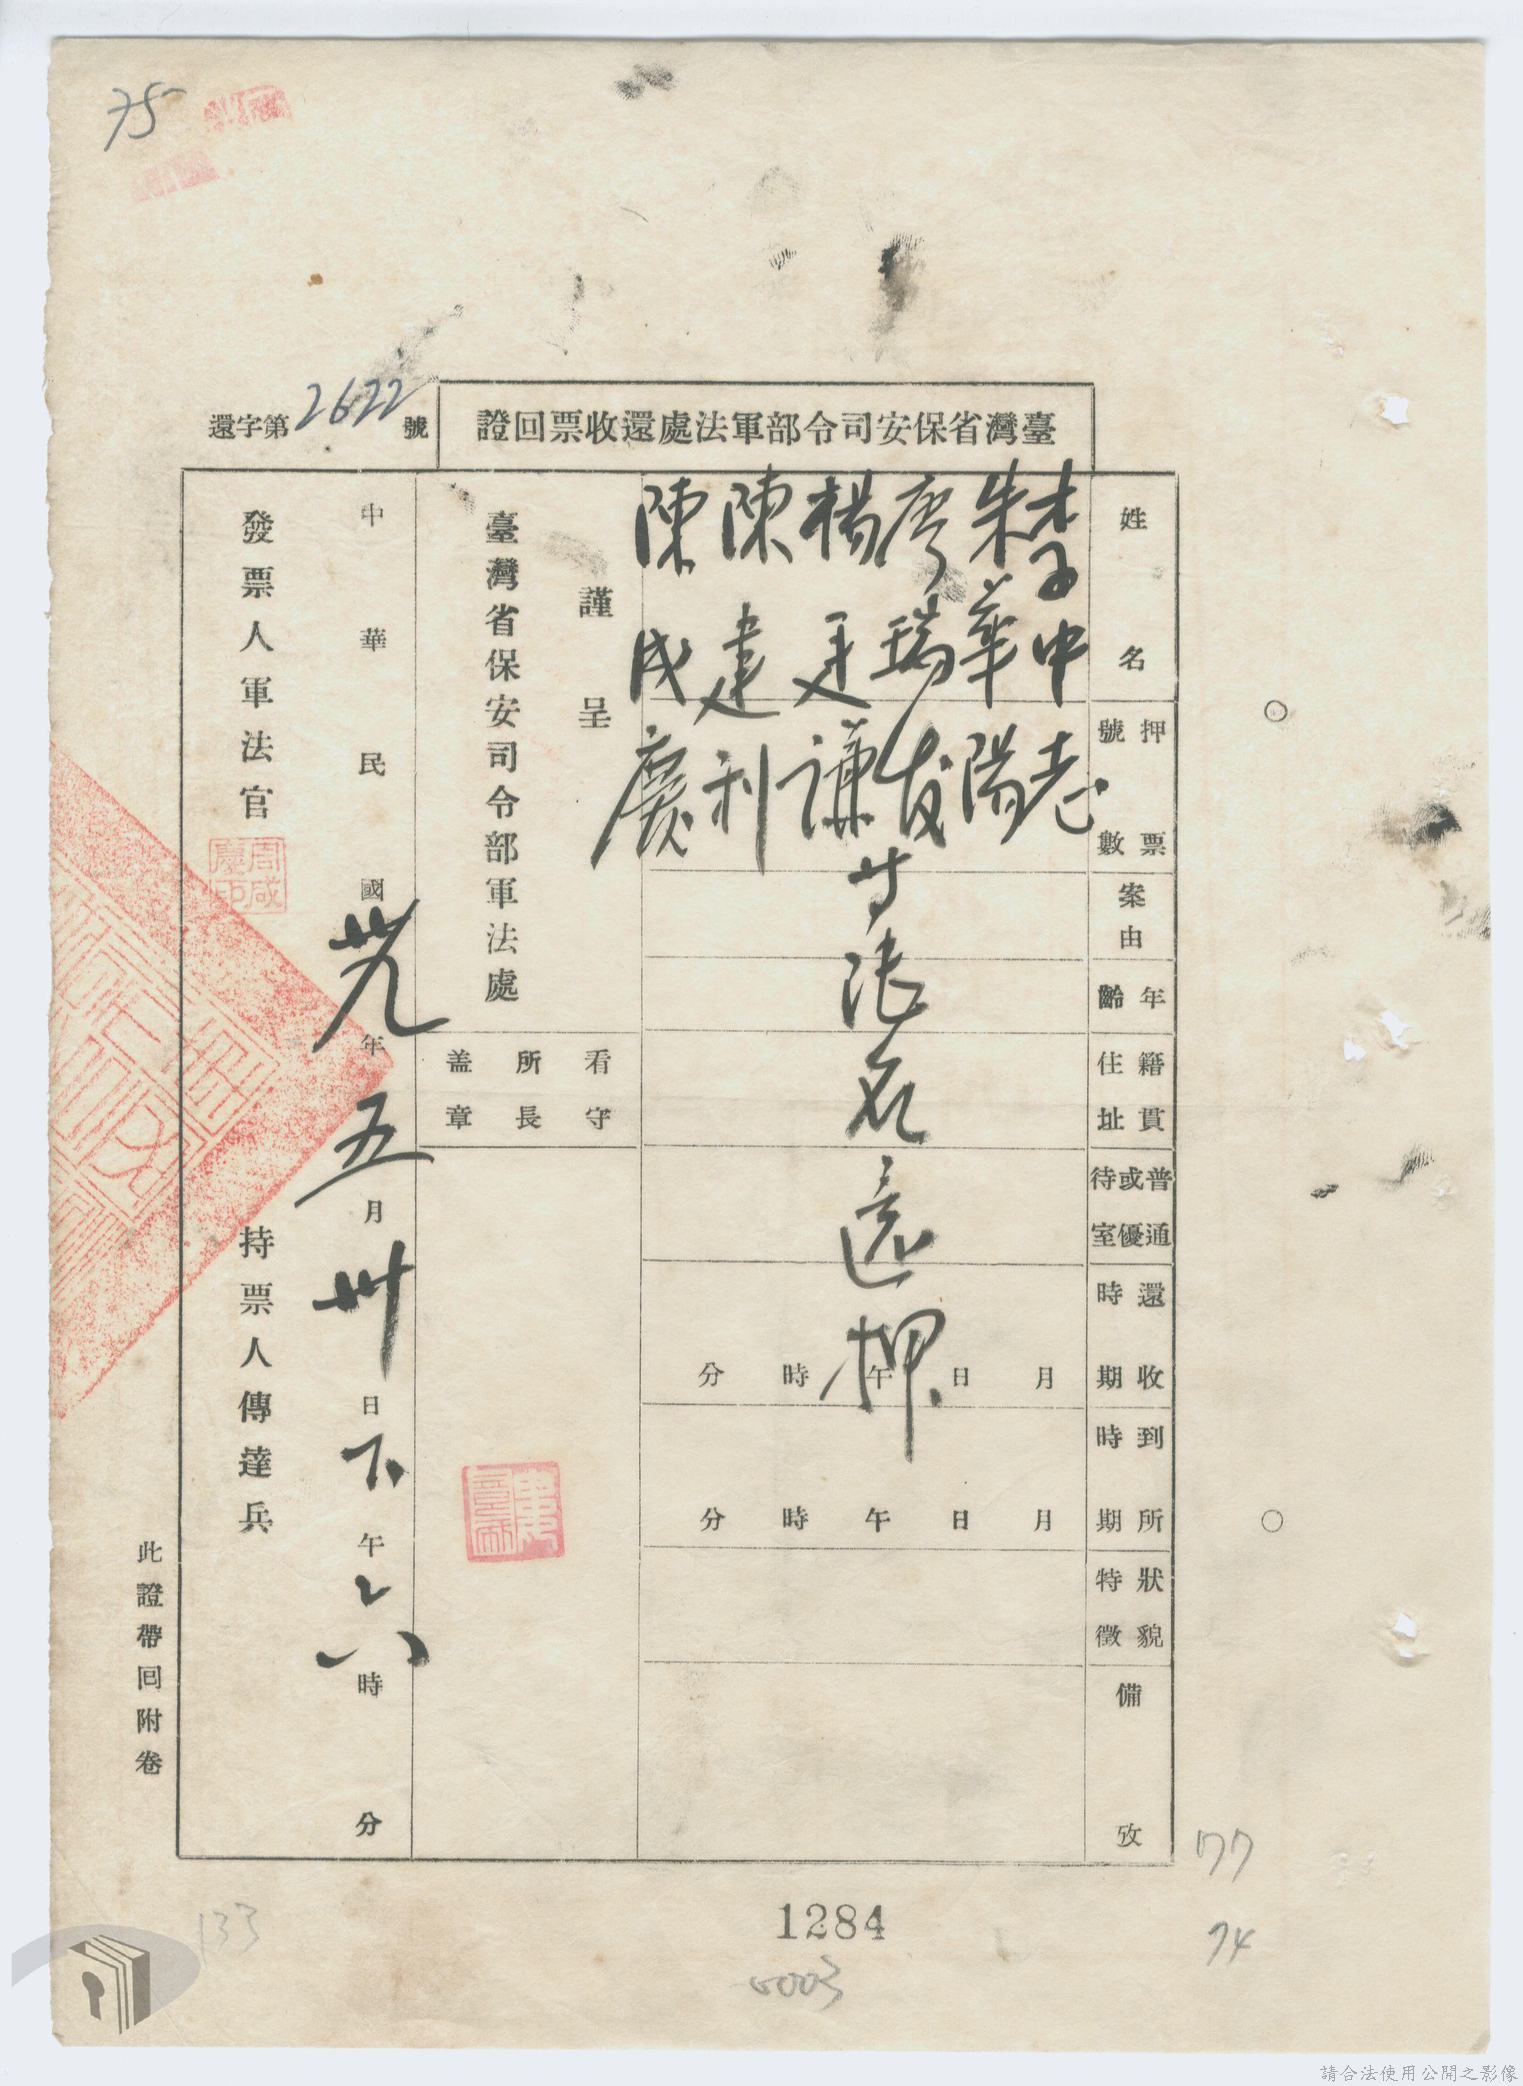 75
臺灣省保安司令部軍法處還收票回證
還字第2622號
姓名
押票號數
案由
年齡
籍貫住址
普通或優待室
還收時期
到所時期
狀貌特徵
備攷
李中志
朱華陽
廖瑞发
楊廷謙
陳建利
陳成慶
等陸名還押
月日午時分
月日午時分
謹呈
臺灣省保安司令部軍法處
看守所長盖章
中華民國卅九年五月卅日下午六時分
發票人軍法官
周咸慶印
持票人傳達兵
此證帶回附卷
77
74
133
1284
0003
請合法使用公開之影像